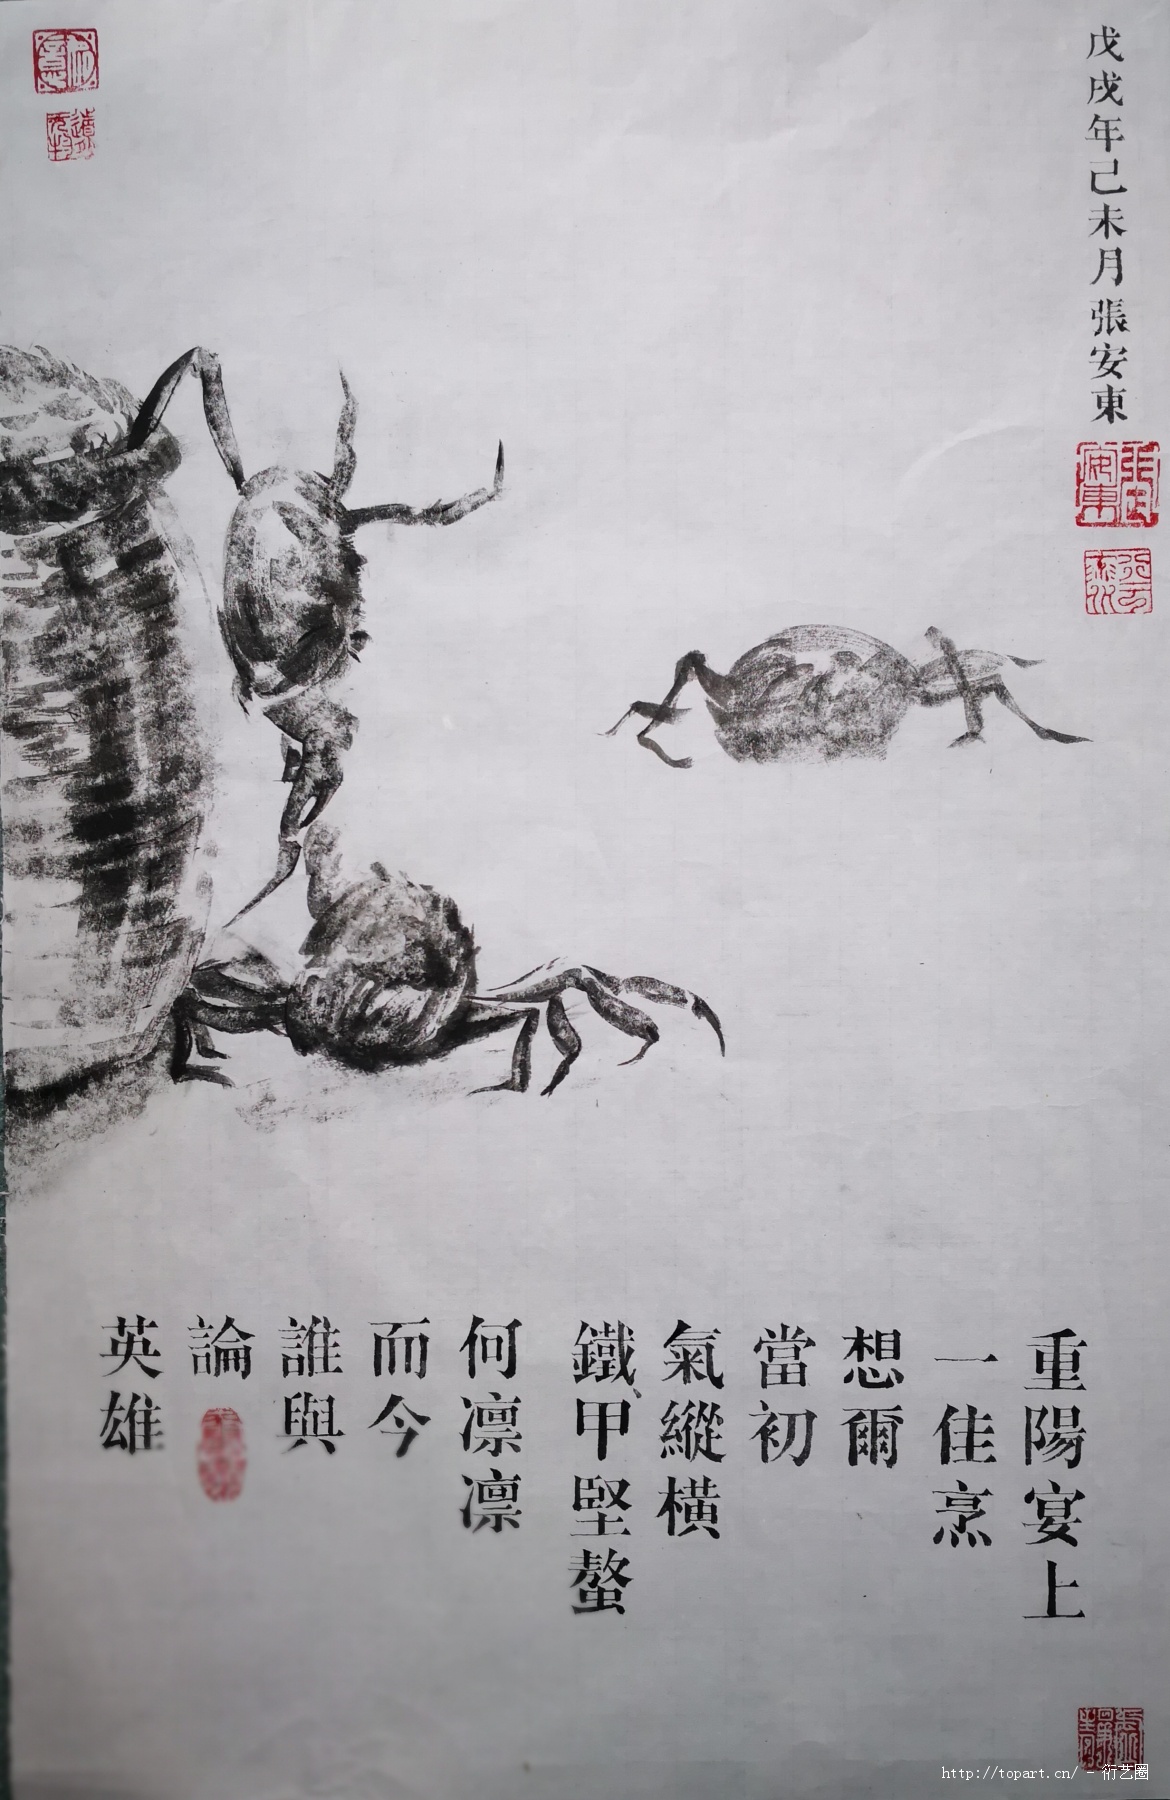 戊戌年己未月張安東
重陽宴上
一佳烹
想爾
當初
氣縱橫
鐵甲堅螯
何凛凛
而今
誰與
論
英雄
http://topart.cn/ - 衍艺圈